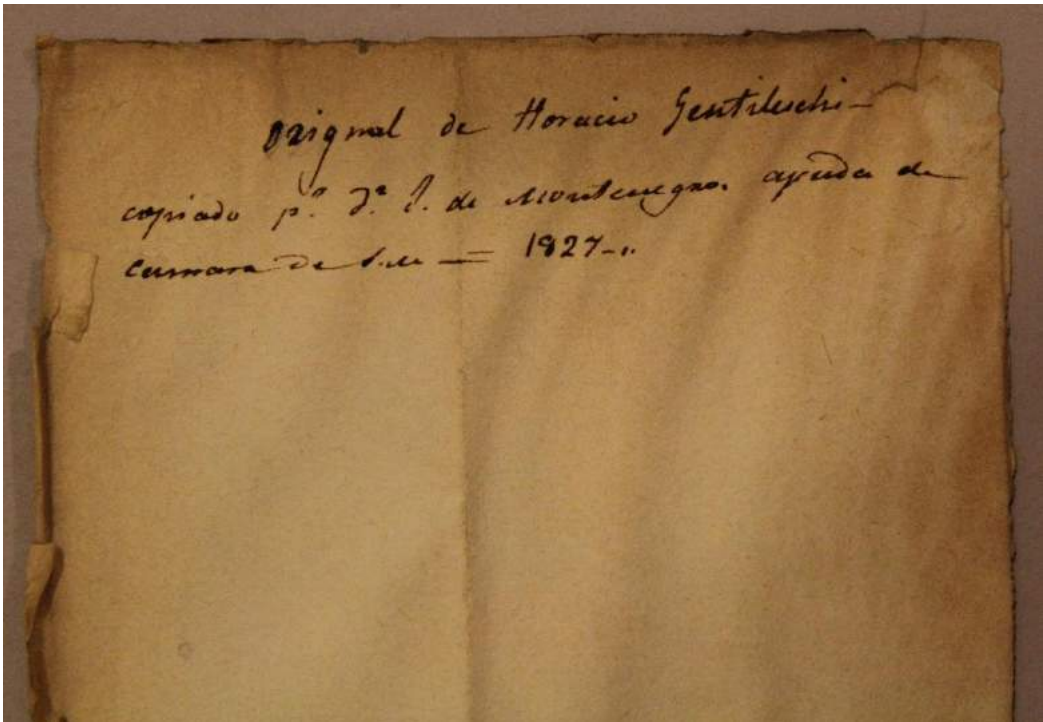 Original de Horacio Gentileschi -
copiado p.r D.n J. de Montenegro. ayuda de
camara de S.M = 1827 -..